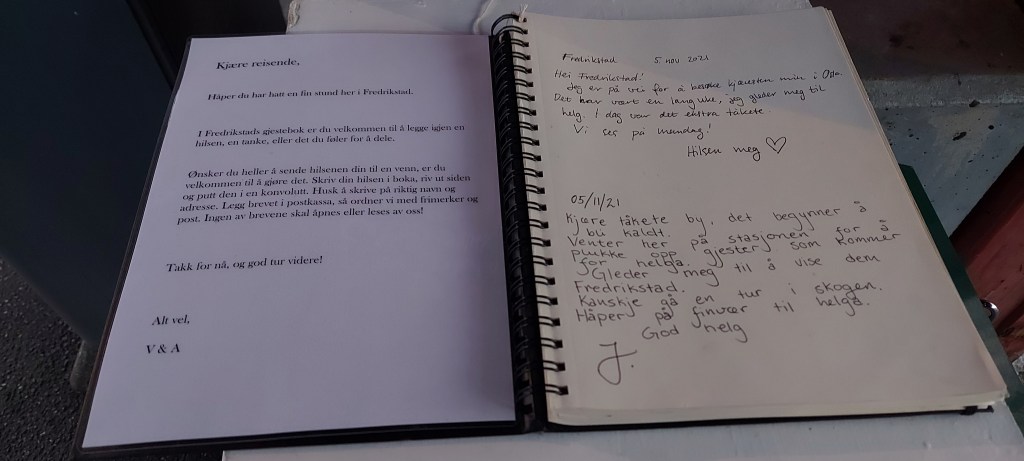 Kjære reisende,
Håper du har hatt en fin stund her i Fredrikstad.
I Fredrikstads gjestebok er du velkommen til å legge igjen en
hilsen, en tanke, eller det du føler for å dele.
Ønsker du heller å sende hilsenen din til en venn, er du
velkommen til å gjøre det. Skriv din hilsen i boka, riv ut siden
og putt den i en konvolutt. Husk å skrive på riktig navn og
adresse. Legg brevet i postkassa, så ordner vi med frimerker og
post. Ingen av brevene skal åpnes eller leses av oss!
Takk for nå, og god tur videre!
Alt vel,
V & A
Fredrikstad 5. nov 2021
Hei Fredrikstad!
Jeg er på vei for å besøke kjæresten min i Oslo
Det har vært en lang uke, jeg gleder meg til
helg. I dag var det ekstra tåkete
Vi ses på mandag!
Hilsen meg ♡
05/11/21
Kjære tåkete by, det begynner å
bli kaldt.
Venter her på stasjonen for å
plukke opp gjester som kommer
for helga.
Gleder meg til å vise dem
Fredrikstad.
Kanskje gå en tur i skogen.
Håper på finvær til helga.
God helg
J.